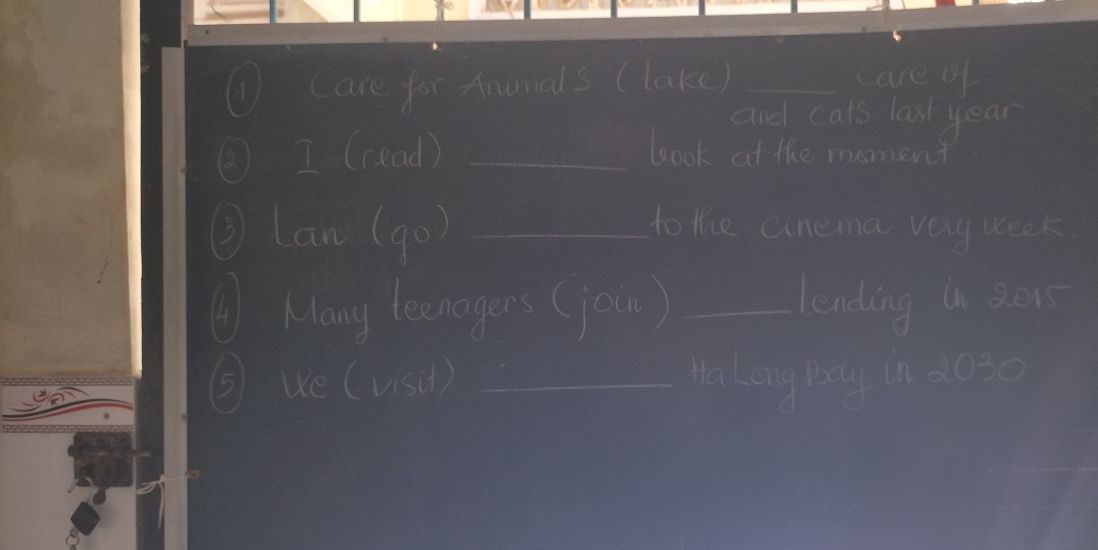 ① Care for Animals (take) ____ care of
and cats last year
② I (read) ________ book at the moment
③ Lan (go) ________ to the cinema very week.
④ Many teenagers (join) _____ lending in 2015
⑤ We (visit) _________ Ha Long Bay in 2030